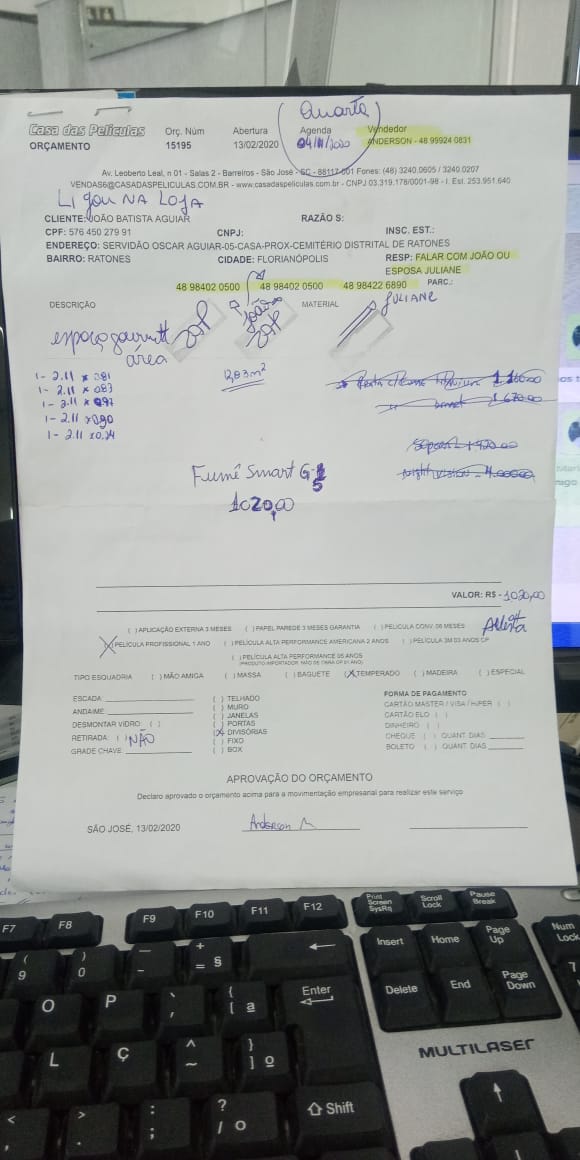 Quarta
Casa das Películas Orç. Núm Abertura Agenda Vendedor
ORÇAMENTO 15195 13/02/2020 04/11/2020 ANDERSON - 48 99924 0831
Av. Leoberto Leal, n 01 - Salas 2 - Barreiros - São José - SC - 88117-001 Fones: (48) 3240.0605 / 3240.0207
VENDAS6@CASADASPELICULAS.COM.BR - www.casadaspeliculas.com.br - CNPJ 03.319.178/0001-98 - I. Est. 253.951.640
LIGOU NA LOJA
CLIENTE: JOÃO BATISTA AGUIAR RAZÃO S:
CPF: 576 450 279 91 CNPJ: INSC. EST.:
ENDEREÇO: SERVIDÃO OSCAR AGUIAR-05-CASA-PROX-CEMITÉRIO DISTRITAL DE RATONES
BAIRRO: RATONES CIDADE: FLORIANÓPOLIS RESP: FALAR COM JOÃO OU
ESPOSA JULIANE
48 98402 0500 48 98402 0500 48 98422 6890 PARC.:
João JULIANE
DESCRIÇÃO MATERIAL
espaço gourmet
área
1- 2.11 x 0.81 12,83m²
1- 2.11 x 0.83
1- 2.11 x 0.97
1- 2.11 x 0.90
1- 2.11 x 0.24
Night vision - 4.000,00
Fumê Smart G-5
1020,00
VALOR: R$ - 1020,00
( ) APLICAÇÃO EXTERNA 3 MESES ( ) PAPEL PAREDE 3 MESES GARANTIA ( ) PELÍCULA CONV. 06 MESES
(X) PELÍCULA PROFISSIONAL 1 ANO ( ) PELÍCULA ALTA PERFORMANCE AMERICANA 2 ANOS ( ) PELÍCULA 3M 03 ANOS CP
( ) PELÍCULA ALTA PERFORMANCE 05 ANOS
TIPO ESQUADRIA ( ) MÃO AMIGA ( ) MASSA ( ) BAGUETE (X) TEMPERADO ( ) MADEIRA ( ) ESPECIAL
ESCADA: ( ) TELHADO FORMA DE PAGAMENTO
ANDAIME: ( ) MURO CARTÃO MASTER / VISA / HIPER ( )
( ) JANELAS CARTÃO ELO ( )
DESMONTAR VIDRO: ( ) ( ) PORTAS DINHEIRO ( )
RETIRADA: ( ) NÃO (X) DIVISÓRIAS CHEQUE ( ) QUANT DIAS
GRADE CHAVE: ( ) FIXO BOLETO ( ) QUANT DIAS
( ) BOX
APROVAÇÃO DO ORÇAMENTO
Declaro aprovado o orçamento acima para a movimentação empresarial para realizar este serviço
SÃO JOSÉ, 13/02/2020 Anderson M
F7 F8 F9 F10 F11 F12 Print Screen SysRq Scroll Lock Pause Break
( 9 ) 0 _ - + = § Insert Home Page Up Num Lock
O P ` ´ { [ ª Enter Delete End Page Down 7
L Ç ^ ~ } ] º MULTILASER
< , > . : ; ? / ° Shift